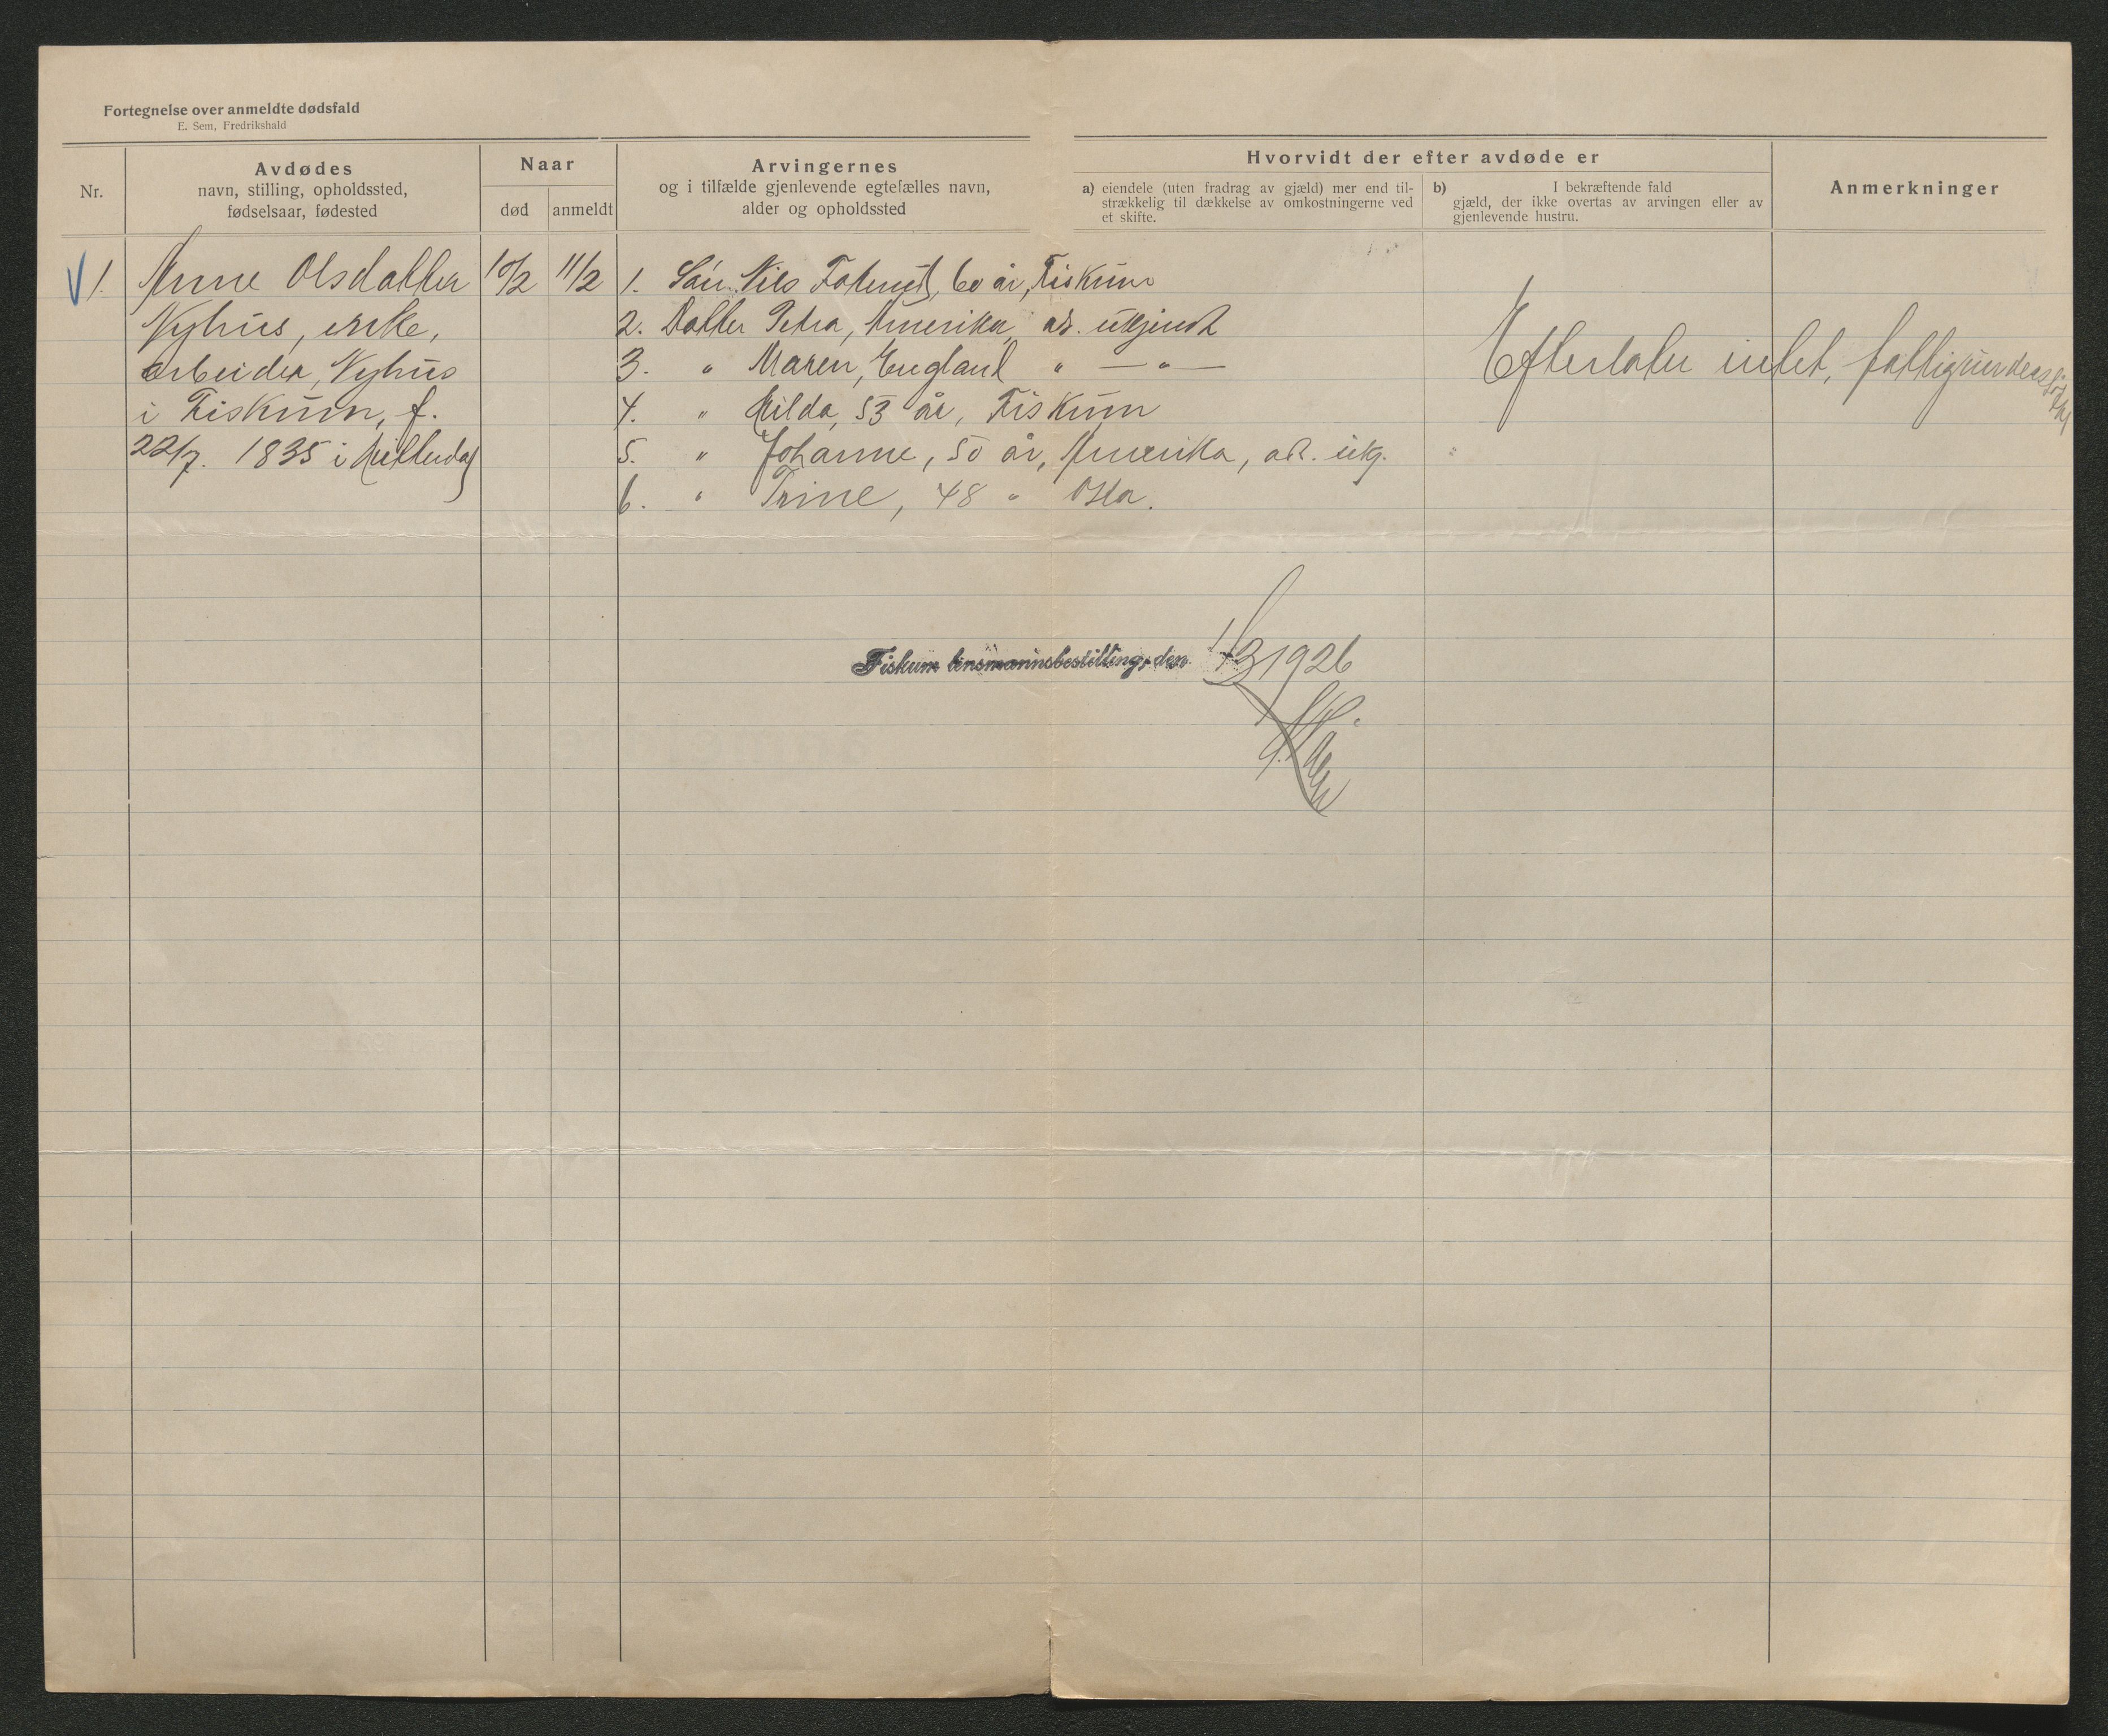 Fortegnelse over anmeldte dødsfald
E. Sem, Fredrikshald
Nr.
Avdødes
navn, stilling, opholdssted,
fødselsaar, fødested
Naar
død
anmeldt
Arvingernes
og i tilfælde gjenlevende egtefælles navn,
alder og opholdssted
Hvorvidt der efter avdøde er
a) eiendele (uten fradrag av gjæld) mer end til-
strækkelig til dækkelse av omkostningerne ved
et skifte.
b) I bekræftende fald
gjæld, der ikke overtas av arvingen eller av
gjenlevende hustru.
Anmerkninger
1. Anne Olsdatter
Nyhus, enke,
arbeider, Nyhus
i Fiskum, f.
22/7. 1835 i
10/2
11/2
1. Søn Nils 60 år, Fiskum
2. Datter Petra, Amerika, ad. ukjendt
3. " Maren, England " — " —
4. " Hilda, 53 år, Fiskum
5. " Johanne, 50 år, Amerika, ad. ukj.
6. " Trine, 48 " Oslo.
Efterlater intet, fattigunderstøttet
Fiskum lensmannsbestilling, den 1/3 1926